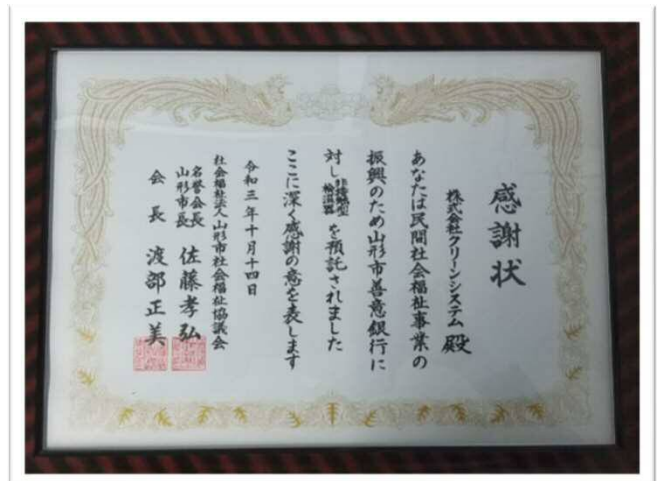 感謝状
株式会社クリーンシステム 殿
あなたは民間社会福祉事業の
振興のため山形市善意銀行に
対し非接触型検温器を預託されました
ここに深く感謝の意を表します
令和三年十月十四日
社会福祉法人山形市社会福祉協議会
名誉会長 山形市長 佐藤孝弘
会長 渡部正美